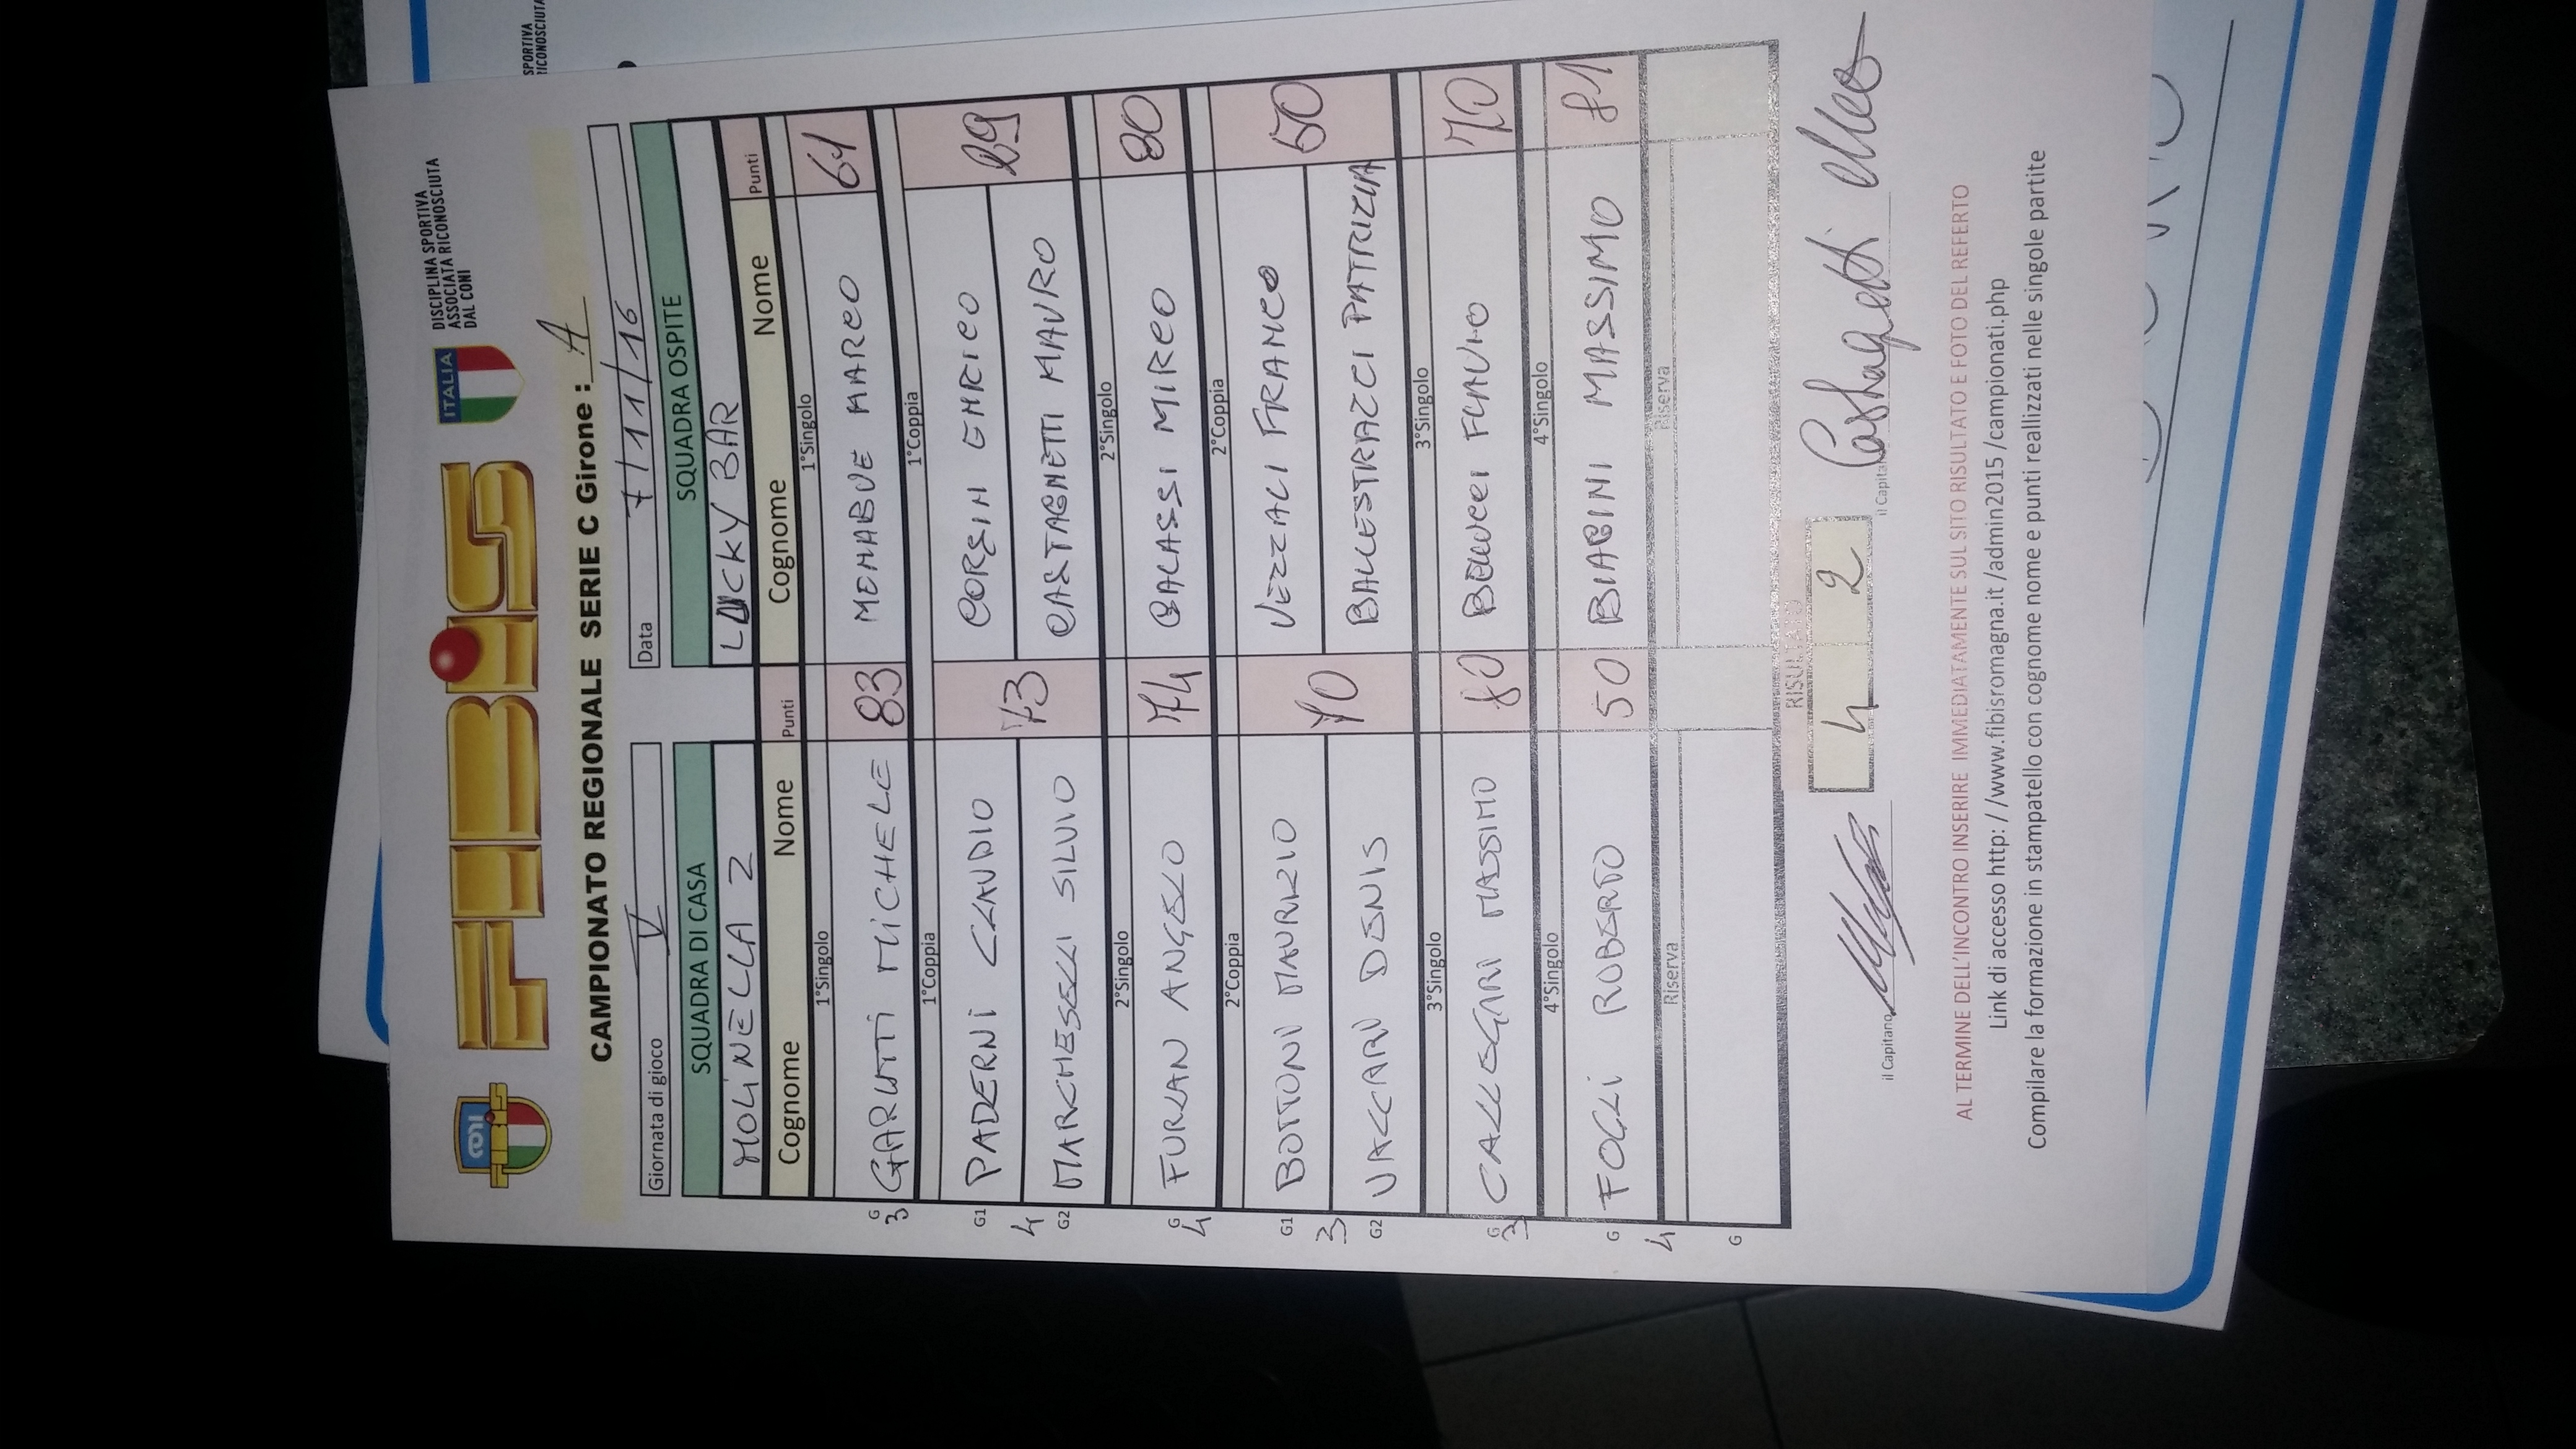 CONI
FIBiS
ITALIA
DISCIPLINA SPORTIVA
ASSOCIATA RICONOSCIUTA
DAL CONI
CAMPIONATO REGIONALE SERIE C Girone : A
Giornata di gioco V
Data 7/11/16
SQUADRA DI CASA SQUADRA OSPITE
MOLINELLA 2 LUCKY BAR
Cognome Nome Punti Cognome Nome Punti
1°Singolo 1°Singolo
G 3 GARUTTI MICHELE 83 MENABUE MARCO 61
1°Coppia 1°Coppia
G1 PADERNI CLAUDIO CORSINI ENRICO
4 73
G2 MARCHESELLI SILVIO CASTAGNETTI MAURO
2°Singolo 2°Singolo
G 4 FURLAN ANGELO 74 GALASSI MIRCO 80
2°Coppia 2°Coppia
G1 BOTTONI MAURIZIO VEZZALI FRANCO
3 70 50
G2 VACCARI DENIS BALLESTRAZZI PATRIZIA
3°Singolo 3°Singolo
G 3 CALLEGARI MASSIMO 80 BELLUCCI FLAVIO 70
4°Singolo 4°Singolo
G 4 FOGLI ROBERTO 50 BIABINI MASSIMO 81
Riserva Riserva
G
RISULTATO
il Capitano 4 2 il Capitano
AL TERMINE DELL'INCONTRO INSERIRE IMMEDIATAMENTE SUL SITO RISULTATO E FOTO DEL REFERTO
Link di accesso http: / /www.fibisromagna.it /admin2015 /campionati.php
Compilare la formazione in stampatello con cognome nome e punti realizzati nelle singole partite
SPORTIVA
RICONOSCIUTA